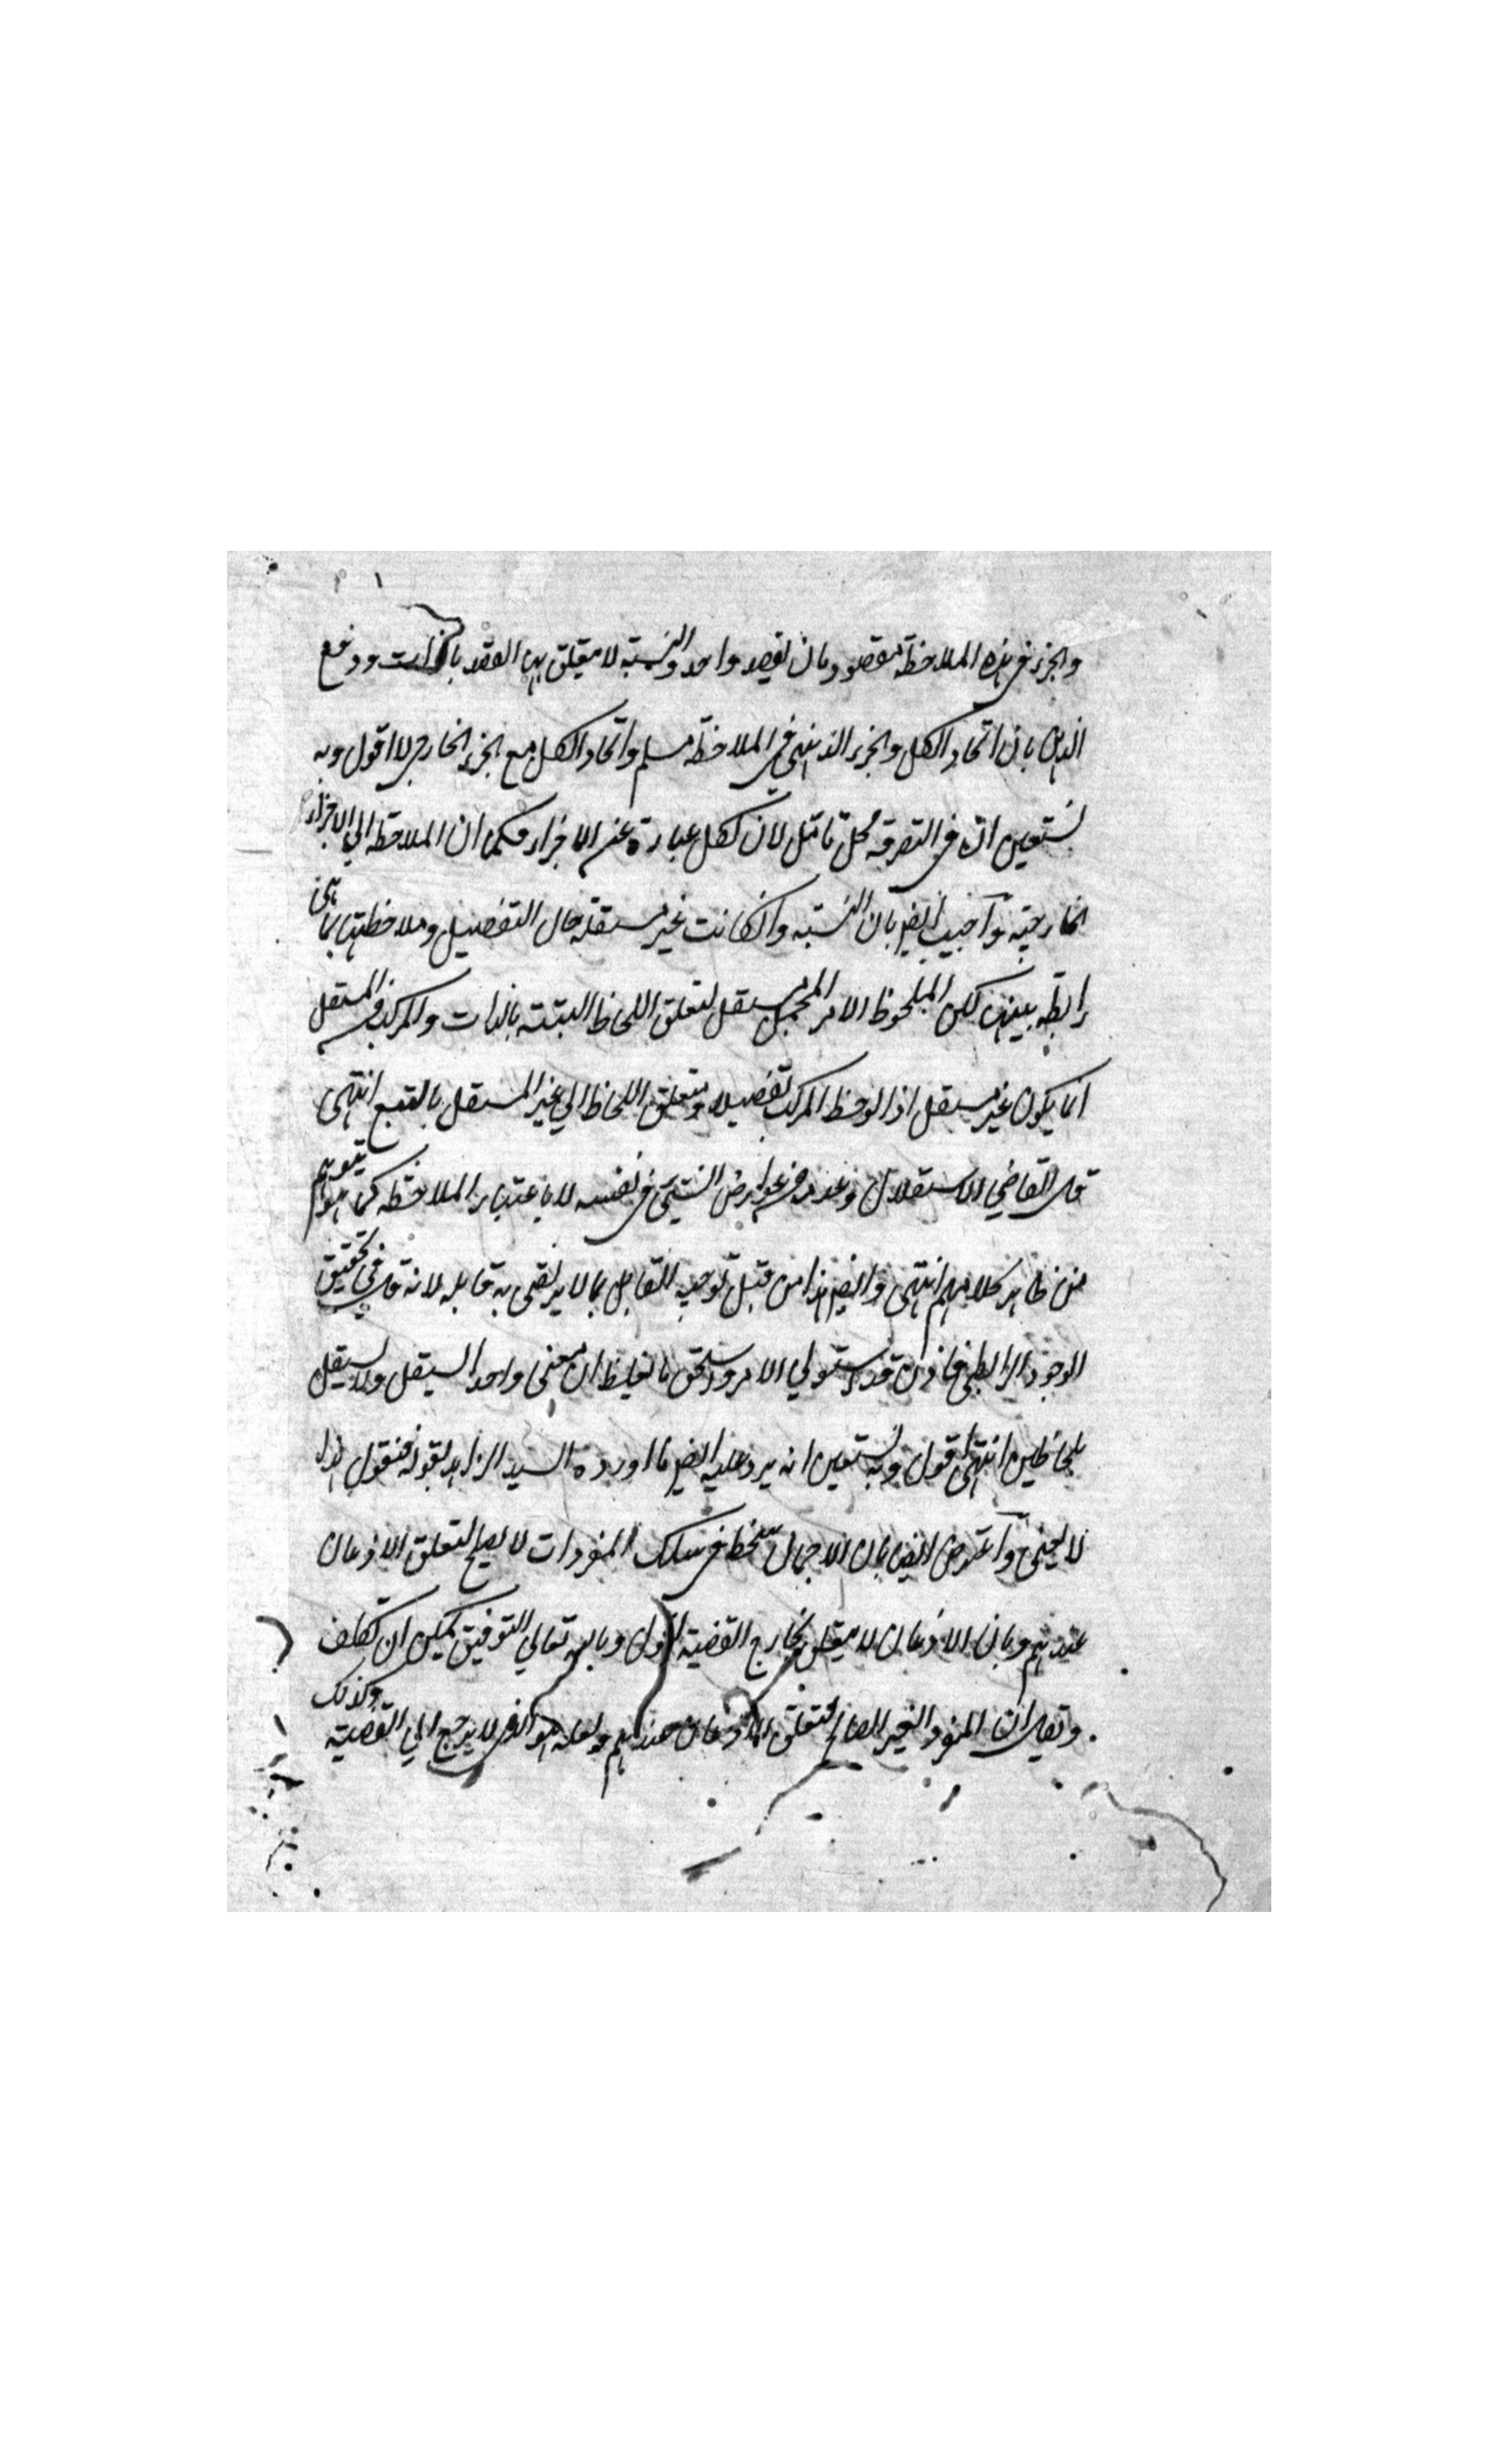 والجزء في هذه الملاحظة مقصودان بقصد واحد والنسبة لا يتعلق بها القصد بالذات ودفع
بان اتحاد الكل والجزء الذهني في الملاحظة مسلم واتحاد الكل مع الجزء الخارجي لا اقول وبه
نستعين ان في التفرقة محل تامل لان الكل عبارة عن الاجزاء فكما ان الملاحظة الي الاجزاء
الخارجية وآجيب ايضا بان النسبة وانكانت غير مستقلة حال التفصيل وملاحظتها بما هي
رابطة بينهما لكن الملحوظ الامر المجمل مستقل لتعلق اللحاظ البتة بالذات والمركب من المستقل
انما يكون غير مستقل اذا لوحظ المركب تفصيلا ويتعلق اللحاظ الي غير المستقل بالتبع انتهى
قال القاضي الاستقلال وعدمه من عوارض الشيئ في نفسه لا باعتبار الملاحظة كما هو يتوهم
من ظاهر كلامهم انتهى وايضا هذا من قبيل توجيه القايل بما لا يرضى به قايله لانه قال في تحقيق
الوجود الرابطي فاذن قد استولي الامر واستحق بالغليظ ان معنى واحدا يستقل ولا يستقل
بلحاظين انتهى اقول وبه نستعين انه يرد عليه ايضا ما اورده السيد الزاهد بقوله فنقول هذا
لا يخفى وآعترض ايضا بان الاجمال منخط في سلك المفردات لا يصلح لتعلق الاذعان
عندهم وبان الاذعان لا يتعلق بخارج القضية اقول وبالله تعالي التوفيق يمكن ان تكلف
ويقال ان المفرد الغير الصالح لتعلق الاذعان عندهم ولعله هو الذي لا يرجع الي القضية وكذلك